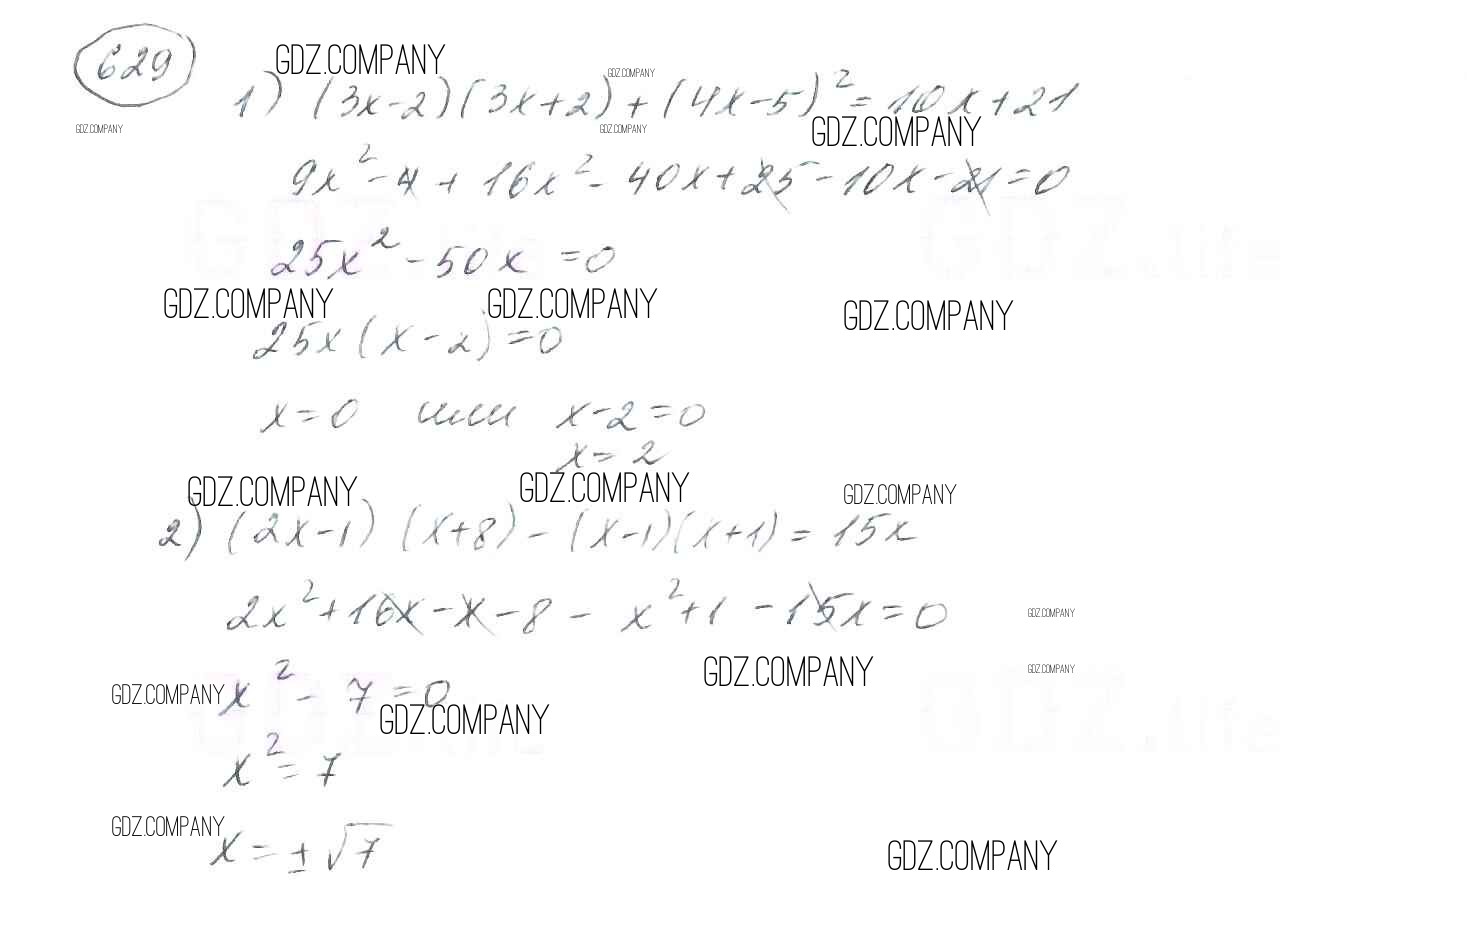 629
GDZ.COMPANY
GDZ.COMPANY
1) (3x-2)(3x+2)+(4x-5)²=10x+21
GDZ.COMPANY
GDZ.COMPANY
GDZ.COMPANY
9x²-4+16x²-40x+25-10x-21=0
GDZ.life
25x²-50x=0
GDZ.COMPANY
GDZ.COMPANY
GDZ.COMPANY
25x(x-2)=0
x=0 или x-2=0
x=2
GDZ.COMPANY
GDZ.COMPANY
GDZ.COMPANY
2) (2x-1)(x+8)-(x-1)(x+1)=15x
2x²+16x-x-8-x²+1-15x=0
GDZ.COMPANY
GDZ.COMPANY
GDZ.COMPANY
GDZ.COMPANY
x²-7=0
GDZ.life
GDZ.life
GDZ.COMPANY
x²=7
GDZ.COMPANY
x=±√7
GDZ.COMPANY